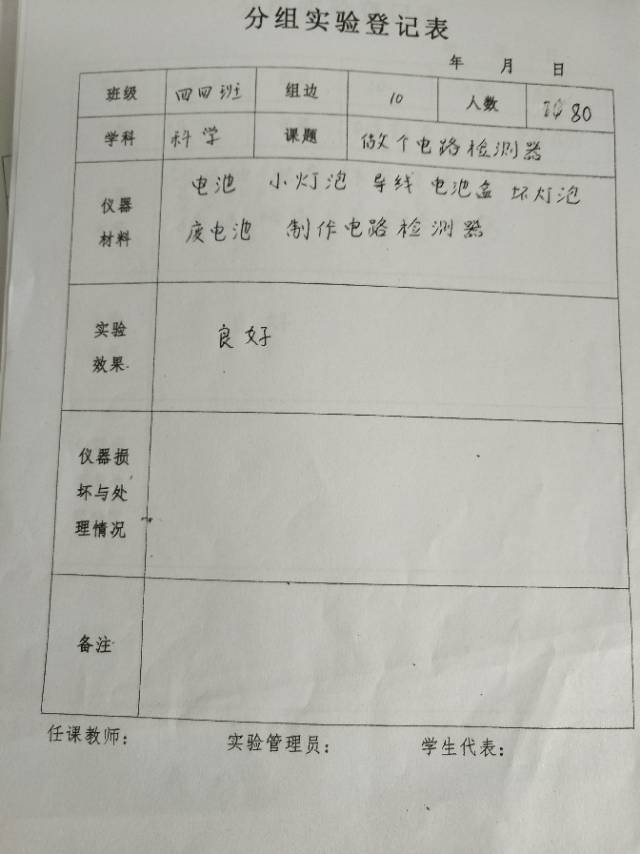 分组实验登记表
年 月 日
班级 四四班 组边 10 人数 80
学科 科学 课题 做个电路检测器
仪器材料 电池 小灯泡 导线 电池盒 坏灯泡
废电池 制作电路检测器
实验效果 良好
仪器损坏与处理情况
备注
任课教师: 实验管理员: 学生代表: